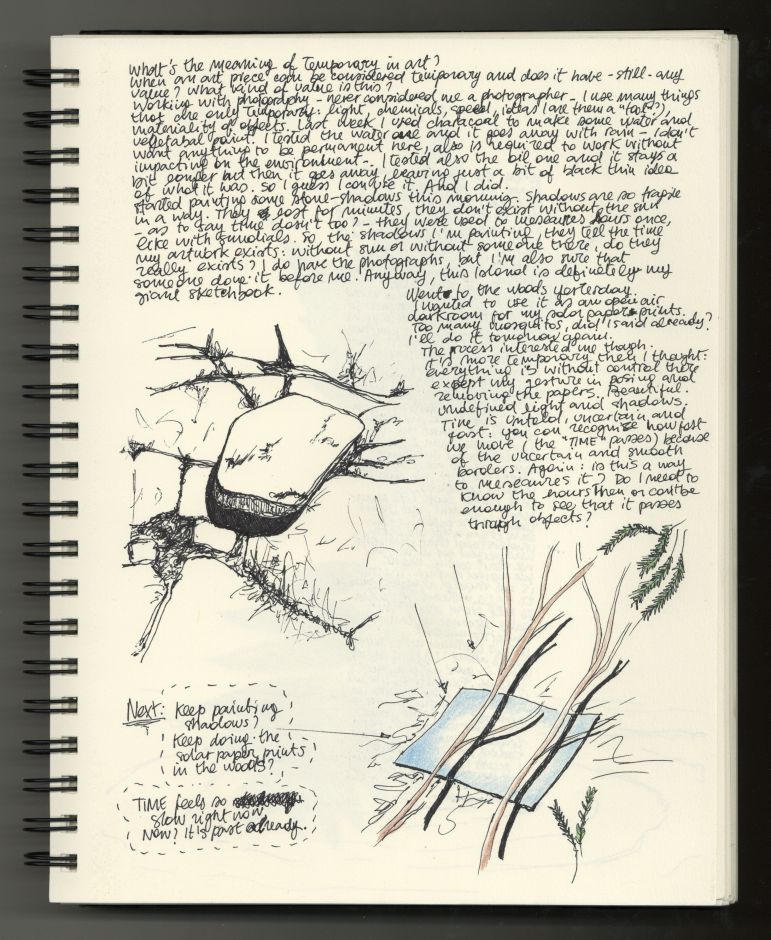 What's the meaning of temporary in art?
When an art piece can be considered temporary and does it have - still - any
value? What kind of value is this?
Working with photography - never considered me a photographer - I use many things
that are only temporary: light, chemicals, speed, ideas (are them a "tool"?),
materiality of objects. Last week I used characoal to make some water and
vegetabal paint. I tested the water one and it goes away with rain - I don't
want anything to be permanent here, also is required to work without
impacting on the environment -. I tested also the oil one and it stays a
bit longer but then it goes away, leaving just a bit of black thin idea
of what it was. So I guess I can use it. And I did.
Started painting some stone-shadows this morning. Shadows are so fragile
in a way. They last for minutes, they don't exist without the sun
- as to say time doesn't too? - they were used to measures hours once,
like with sundials. So, the shadows I'm painting, they tell the time
my artwork exists: without sun or without someone there, do they
really exists? I do have the photographs, but I'm also sure that
someone done it before me. Anyway, this island is definetely my
giant sketchbook.
Went to the woods yesterday.
I wanted to use it as an open air
darkroom for my solar paper prints.
Too many mosquitos, did I said already?
I'll do it tomorrow again.
The process interested me though.
It is more temporary then I thought:
everything is without control there
except my gesture in posing and
removing the papers. Beautiful.
Undefined light and shadows.
Time is untold, uncertain and
fast. You can recognise how fast
we move (the "TIME" passes) because
of the uncertain and smooth
borders. Again: is this a way
to mesaures it? Do I need to
know the hours then or can't be
enough to see that it passes
through objects?
Next: Keep painting
shadows?
Keep doing the
solar paper prints
in the woods?
TIME feels so
slow right now
Now? It's past already.